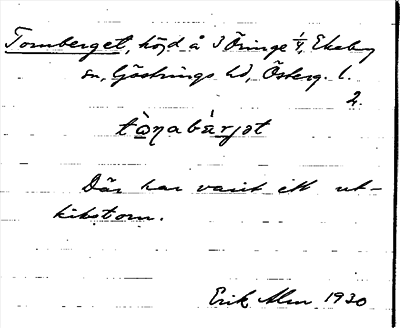 Tornberget, höjd å 3 Öringe 1/4, Ekeby
sn, Göstrings hd, Österg. l.
2.
tò̱ŋabæ̀rjət
Där har varit ett ut-
kikstorn.
Erik Alm 1930